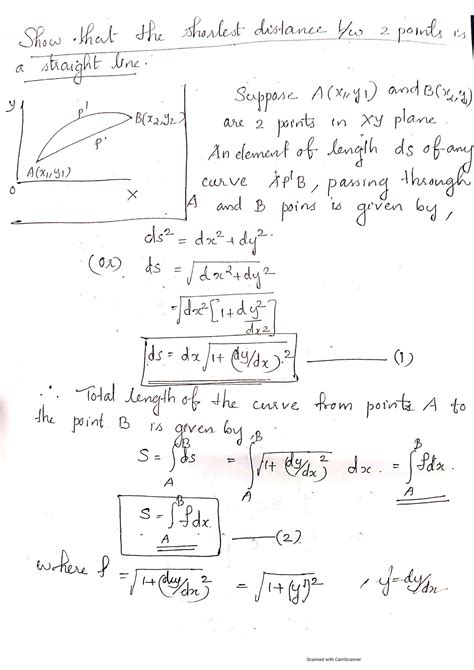 Show that the shortest distance b/w 2 points is
a straight line.
y
P'
B(x2,y2)
P
A(x1,y1)
0
X
Suppose A(x1,y1) and B(x2,y2)
are 2 points in XY plane.
An element of length ds of any
curve AP'B, passing through
A and B poins is given by,
ds² = dx² + dy².
(or) ds = √dx²+dy²
= √dx²[1+dy²/dx²]
ds = dx √1+(dy/dx)² —— (1)
∴ Total length of the curve from points A to
the point B is given by
S = ∫_A^B ds = ∫_A^B √1+(dy/dx)² dx. = ∫_A^B f dx.
S = ∫_A^B f dx. —— (2)
where f = √1+(dy/dx)² = √1+(y')² , y' = dy/dx
Scanned with CamScanner